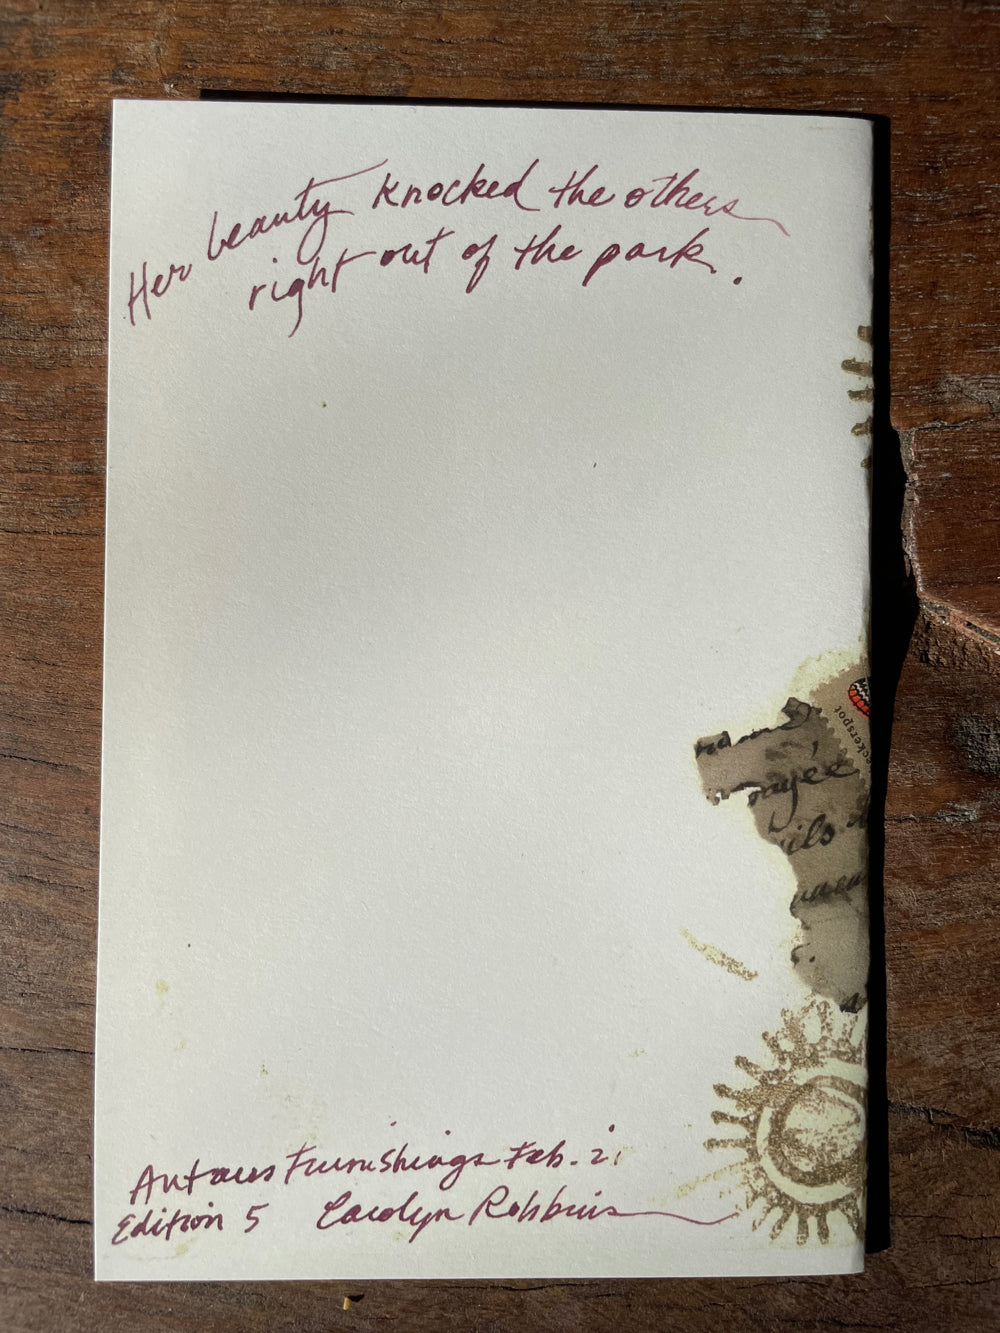 Her beauty knocked the others
right out of the park.
ckerspot
ayée
ils
Furnishings Feb. 21
Edition 5 Carolyn Robbins